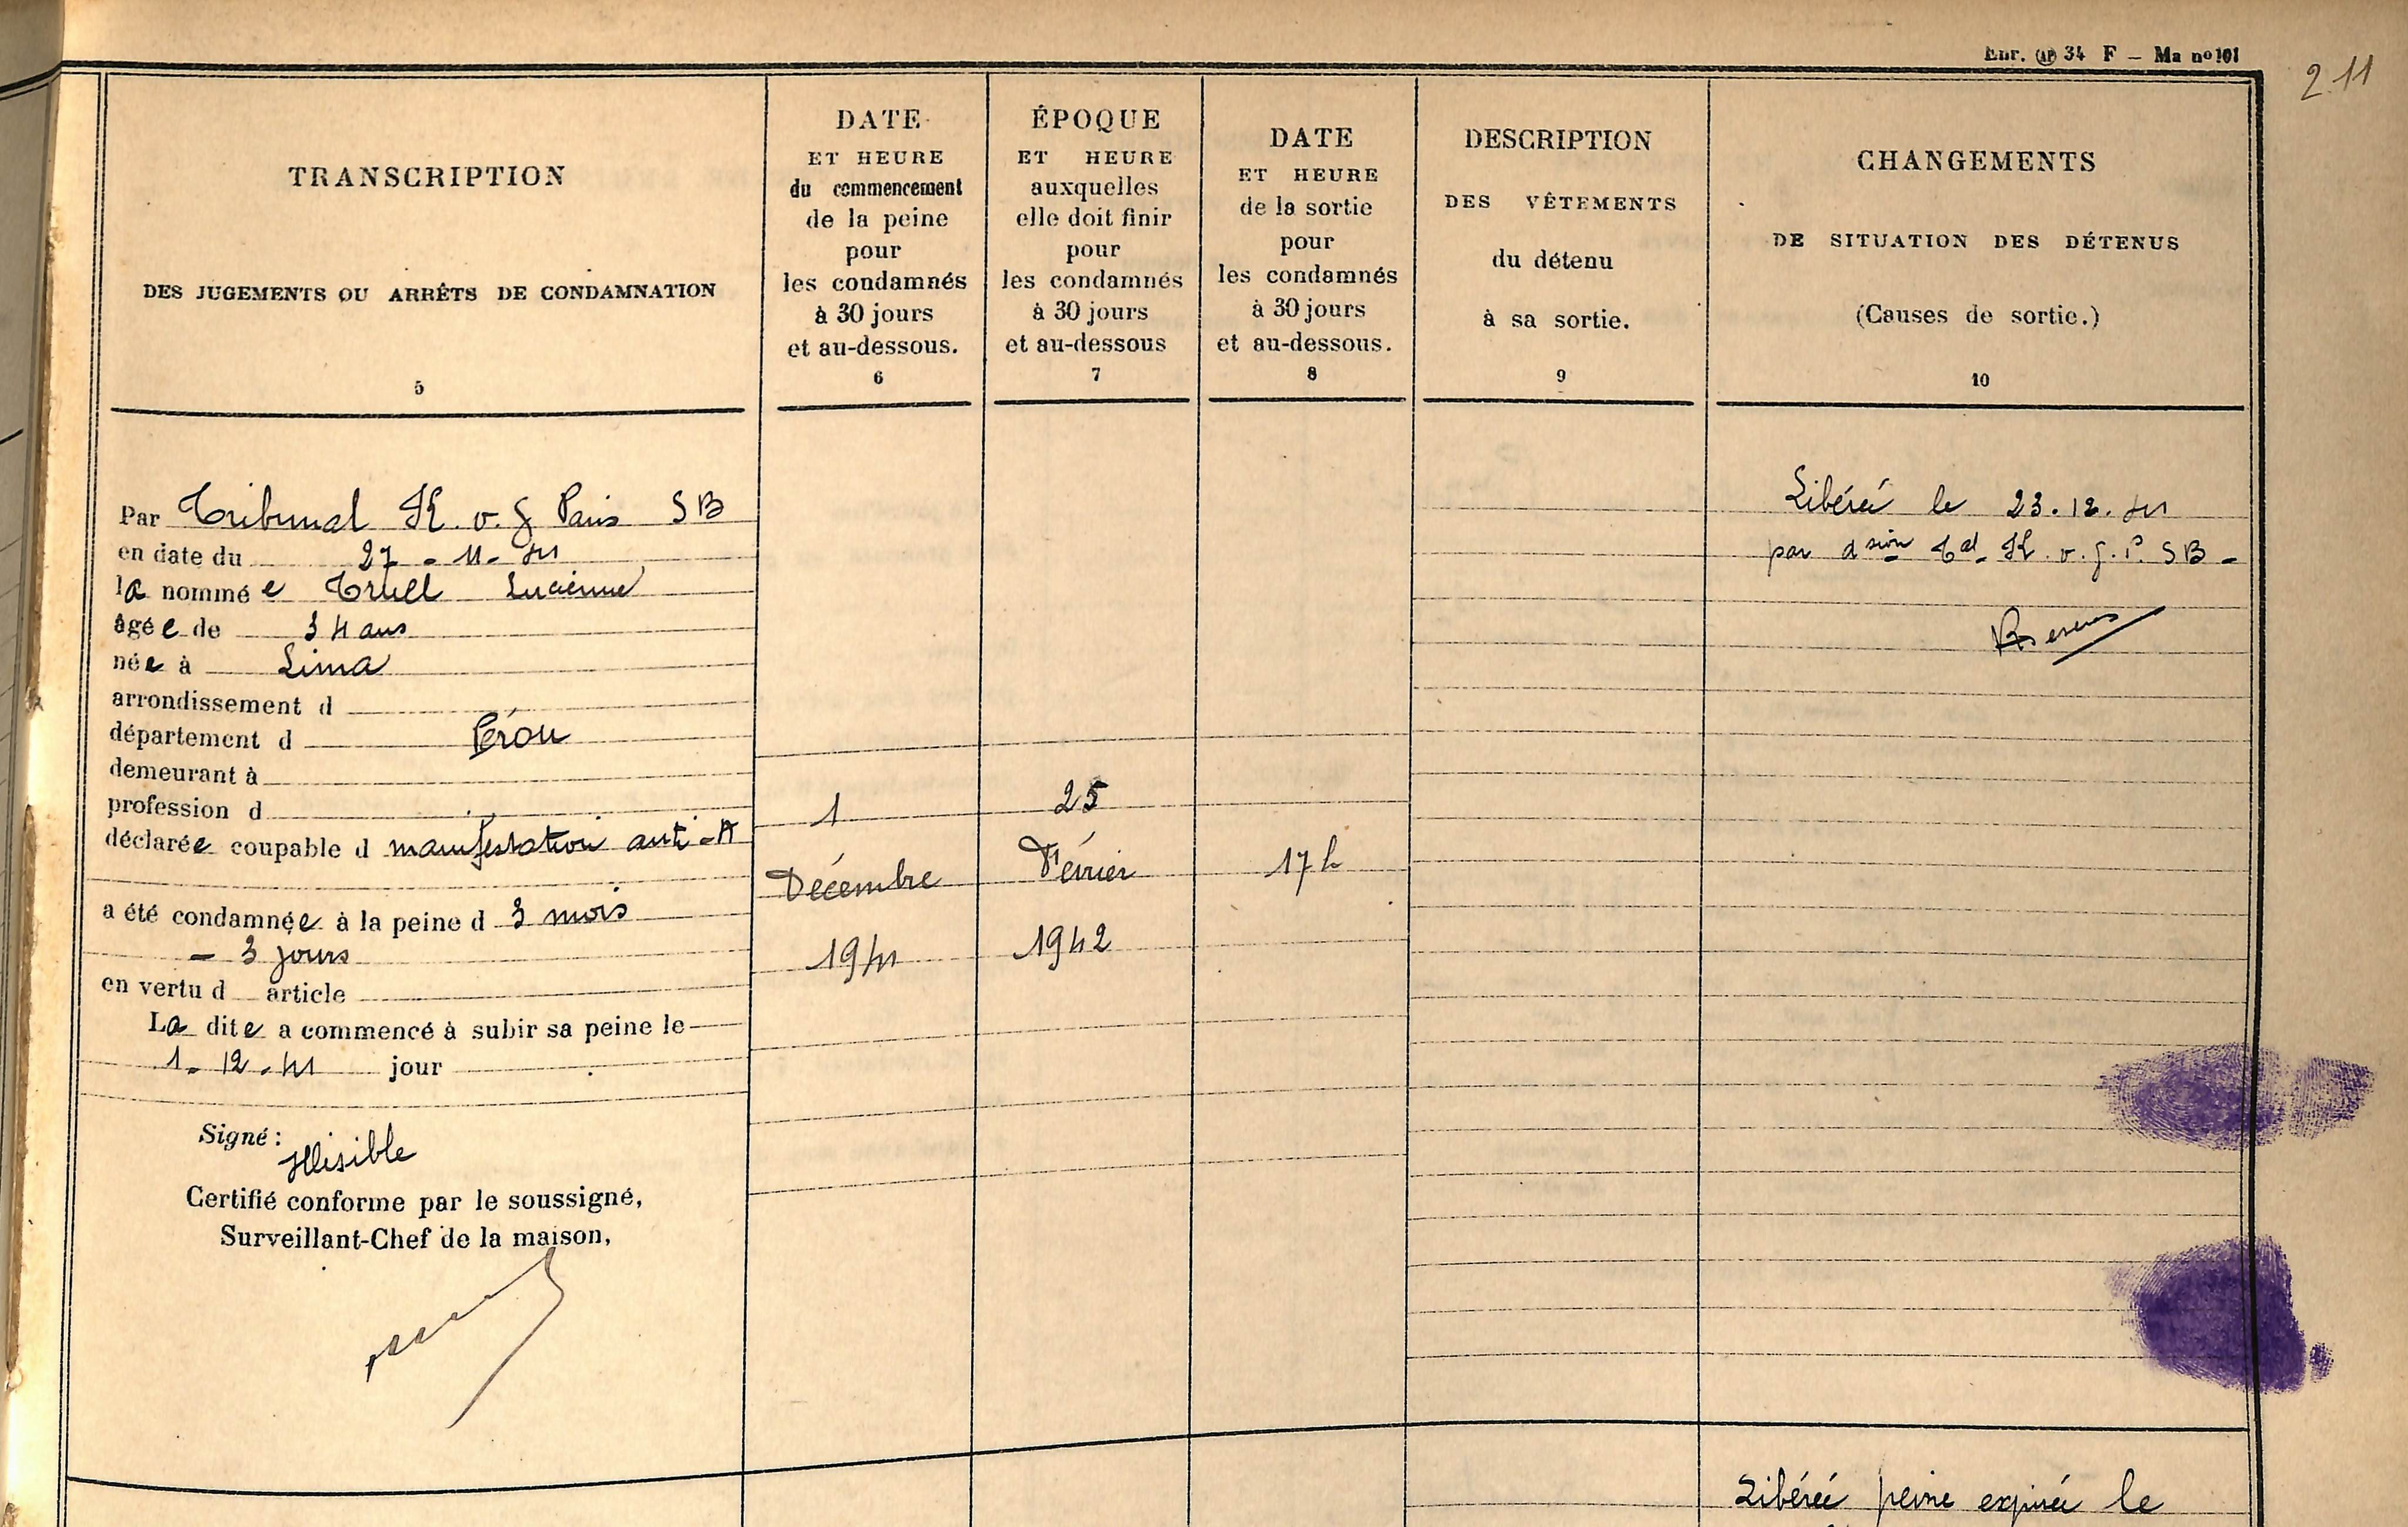 Enr. 34 F — Ma nº 101
2.11
TRANSCRIPTION
DES JUGEMENTS OU ARRÊTS DE CONDAMNATION
5
DATE
ET HEURE
du commencement
de la peine
pour
les condamnés
à 30 jours
et au-dessous.
6
ÉPOQUE
ET HEURE
auxquelles
elle doit finir
pour
les condamnés
à 30 jours
et au-dessous
7
DATE
ET HEURE
de la sortie
pour
les condamnés
à 30 jours
et au-dessous.
8
DESCRIPTION
DES VÊTEMENTS
du détenu
à sa sortie.
9
CHANGEMENTS
DE SITUATION DES DÉTENUS
(Causes de sortie.)
10
Par Tribunal K. v. g Paris SB
en date du 27 - 11 - 41
la nommée Truel Lucienne
âgée de 34 ans
née à Lima
arrondissement d
département d Pérou
demeurant à
profession d
déclarée coupable d manifestation anti-A
a été condamnée à la peine d 3 mois
- 3 jours
en vertu d article
La dite a commencé à subir sa peine le
1 - 12 - 41 jour
Signé :
Illisible
Certifié conforme par le soussigné,
Surveillant-Chef de la maison,
1
Décembre
1941
25
Février
1942
17 h
Libérée le 23.12.41
par dsion Tal K. v. g. P. SB -
Libérée peine expirée le